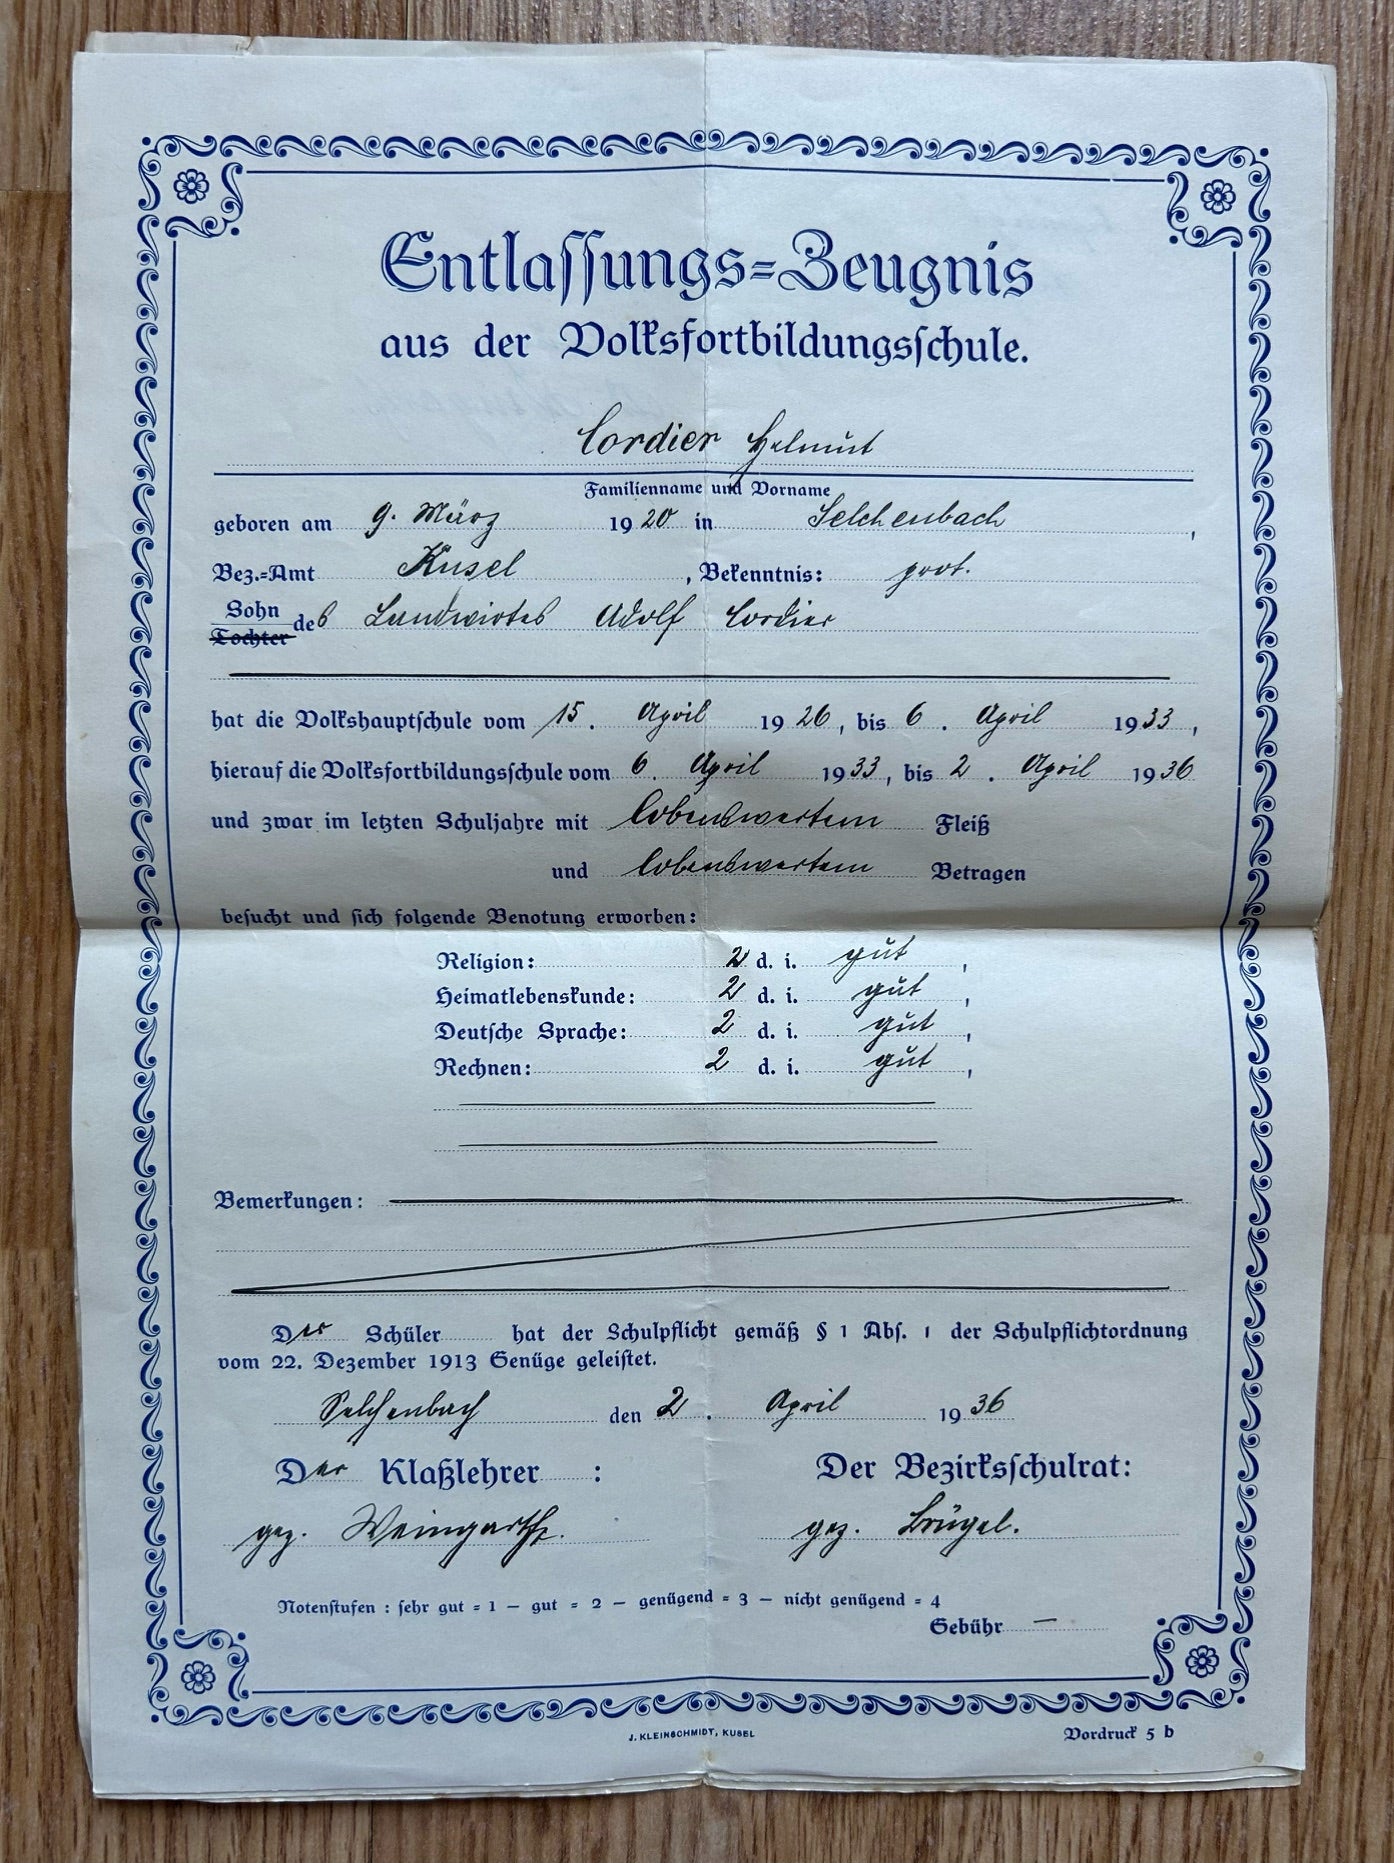 Entlassungs-Zeugnis
aus der Volksfortbildungsschule.
Cordier Helmut
Familienname und Vorname
geboren am 9. März 1920 in Selchenbach,
Bez.-Amt Kusel, Bekenntnis: prot.
Sohn
Tochter des Landwirtes Adolf Cordier
hat die Volkshauptschule vom 15. April 1926, bis 6. April 1933,
hierauf die Volksfortbildungsschule vom 6. April 1933, bis 2. April 1936
und zwar im letzten Schuljahre mit lobenswertem Fleiß
und lobenswertem Betragen
besucht und sich folgende Benotung erworben:
Religion: 2 d. i. gut,
Heimatlebenskunde: 2 d. i. gut,
Deutsche Sprache: 2 d. i. gut,
Rechnen: 2 d. i. gut,
Bemerkungen:
Der Schüler hat der Schulpflicht gemäß § 1 Abs. 1 der Schulpflichtordnung
vom 22. Dezember 1913 Genüge geleistet.
Selchenbach den 2. April 1936
Der Klaßlehrer : Der Bezirksschulrat:
gez. Weingarth. gez. Brügel.
Notenstufen : sehr gut = 1 — gut = 2 — genügend = 3 — nicht genügend = 4
Gebühr —
J. KLEINSCHMIDT, KUSEL Vordruck 5 b